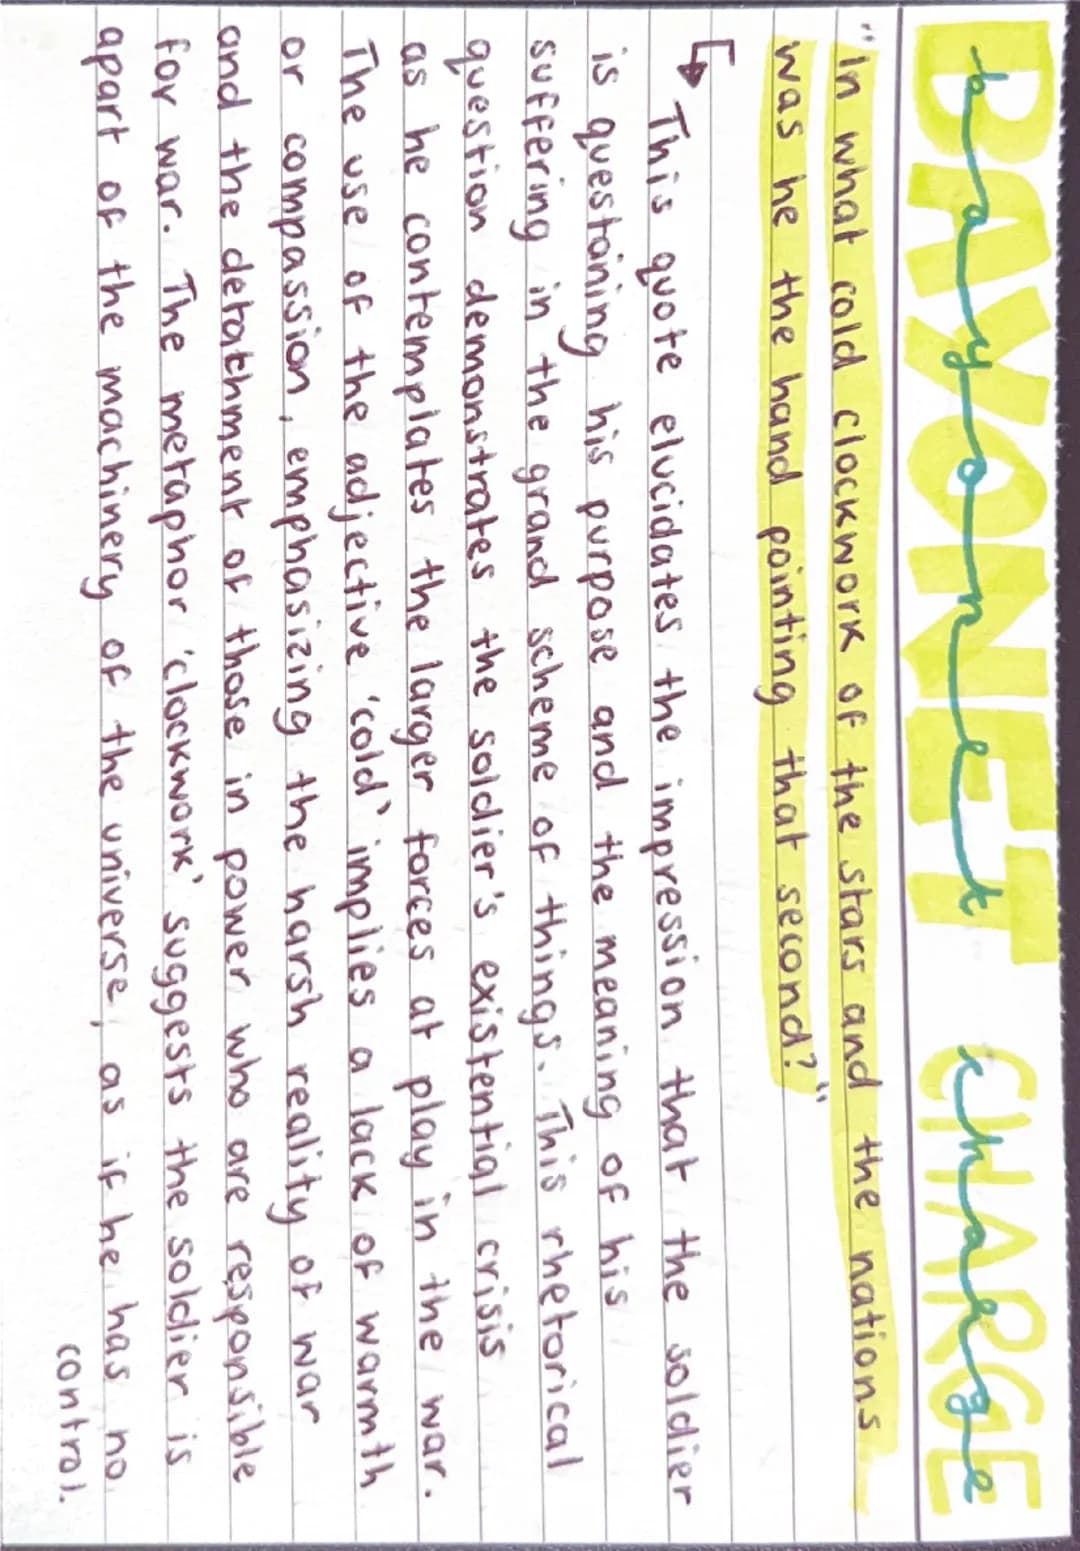 BAYONET CHARGE
bayonet charge
"In what cold clockwork of the stars and the nations
was he the hand pointing that second?"
This quote elucidates the impression that the soldier
is questoning his purpose and the meaning of his
suffering in the grand scheme of things. This rhetorical
question demonstrates the soldier's existential crisis
as he contemplates the larger forces at play in the war.
The use of the adjective 'cold' implies a lack of warmth
or compassion, emphasizing the harsh reality of war
and the detatchment of those in power who are responsible
for war. The metaphor 'clockwork' suggests the soldier is
apart of the machinery of the universe, as if he has no
control.